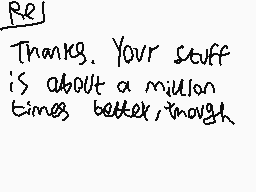 Re
Thanks. Your stuff
is about a million
times better, though